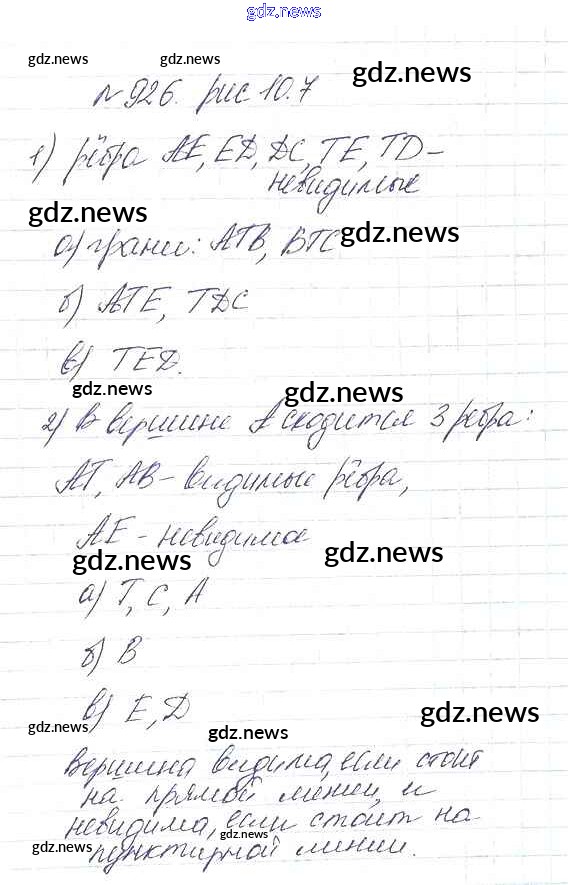 gdz.news
gdz.news gdz.news gdz.news
№926. рис 10.7
1) рёбра AE, ED, DC, TE, TD –
невидимые
gdz.news
а) грани: ATB, BTC gdz.news
б) ATE, TDC
в) TED.
gdz.news gdz.news
2) В вершине A сходится 3 ребра:
AT, AB – видимые рёбра,
AE – невидимое
gdz.news gdz.news
а) T, C, A
б) B
gdz.news
в) E, D gdz.news
gdz.news gdz.news
Вершина видима, если стоит
на прямой линии, и
невидима, если стоит на
gdz.news
gdz.news gdz.news
пунктирной линии.